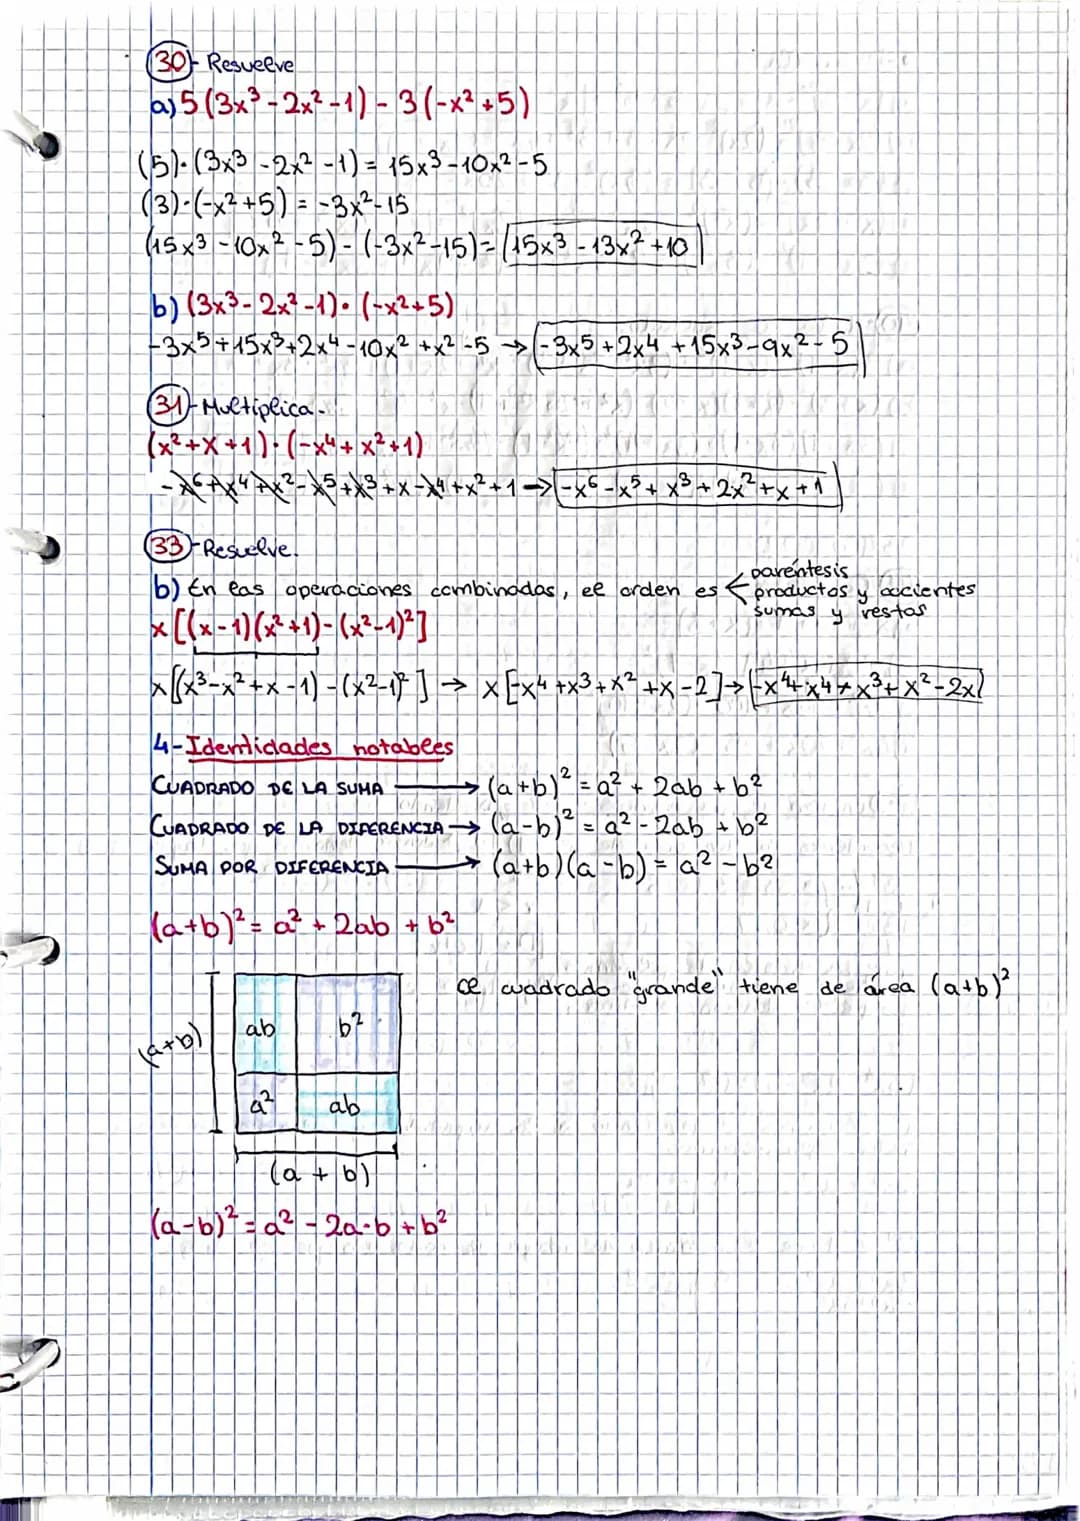 30- Resuelve
a) 5(3x³-2x²-1) - 3(-x²+5)
(5)·(3x³-2x²-1) = 15x³-10x²-5
(3)·(-x²+5) = -3x²-15
(15x³-10x²-5) - (-3x²-15) = 15x³-13x²+10
b) (3x³-2x²-1)·(-x²+5)
-3x⁵+15x³+2x⁴-10x²+x²-5 → -3x⁵+2x⁴+15x³-9x²-5
31- Multiplica-
(x²+x+1)·(-x⁴+x²+1)
-x⁶+x⁴+x²-x⁵+x³+x-x⁴+x²+1 → -x⁶-x⁵+x³+2x²+x+1
33- Resuelve.
b) En las operaciones combinadas, el orden es
paréntesis
productos y cocientes
sumas y restas
x[(x-1)(x²+1)-(x²-1)²]
x[(x³-x²+x-1)-(x²-1)²] → x[-x⁴+x³+x²+x-2] → -x⁴+x⁴+x³+x²-2x
4-Identidades notables
CUADRADO DE LA SUMA → (a+b)² = a² + 2ab + b²
CUADRADO DE LA DIFERENCIA → (a-b)² = a² - 2ab + b²
SUMA POR DIFERENCIA → (a+b)(a-b) = a² - b²
(a+b)² = a² + 2ab + b²
el cuadrado "grande" tiene de área (a+b)²
ab b²
(a+b)
a² ab
(a + b)
(a-b)² = a² - 2a·b + b²